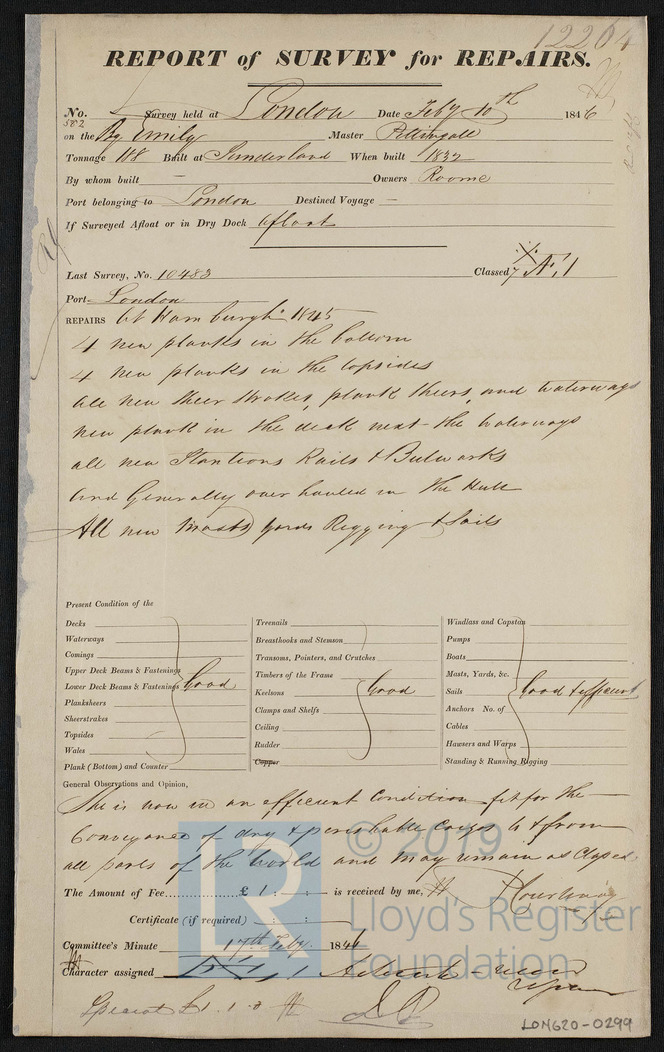 12204
REPORT of SURVEY for REPAIRS.
No. 582 Survey held at London Date Feby 10th 1846
on the Bg Emily Master Pettingale
Tonnage 118 Built at Sunderland When built 1832
By whom built — Owners Roome
Port belonging to London Destined Voyage —
If Surveyed Afloat or in Dry Dock afloat
Last Survey, No. 10483 Classed 7 A.1
Port London
REPAIRS at Hamburgh 1845
4 new planks in the bottom
4 new planks in the topsides
all new sheer strakes, plank sheers, and waterways
new plank in the deck next the waterways
all new Stantions Rails & Bulwarks
and Generally over hauled in the Hull
All new Masts yards Rigging & Sails
Present Condition of the
Decks
Waterways
Comings
Upper Deck Beams & Fastenings
Lower Deck Beams & Fastenings Good
Planksheers
Sheerstrakes
Topsides
Wales
Plank (Bottom) and Counter
Treenails
Breasthooks and Stemson
Transoms, Pointers, and Crutches
Timbers of the Frame
Keelsons Good
Clamps and Shelfs
Ceiling
Rudder
Copper
Windlass and Capstan
Pumps
Boats
Masts, Yards, &c.
Sails Good & efficient
Anchors No. of
Cables
Hawsers and Warps
Standing & Running Rigging
General Observations and Opinion,
She is now in an efficient Condition fit for the
Conveyance of dry & perishable Cargos to & from
all parts of the World and may remain as Classed
The Amount of Fee £ 1 : : is received by me, Courtenay
Certificate (if required) : :
Committee's Minute 17th Feby. 1846
Character assigned
Special £1.1.0
LR
© 2019
Lloyd's Register
Foundation
LON620-0299